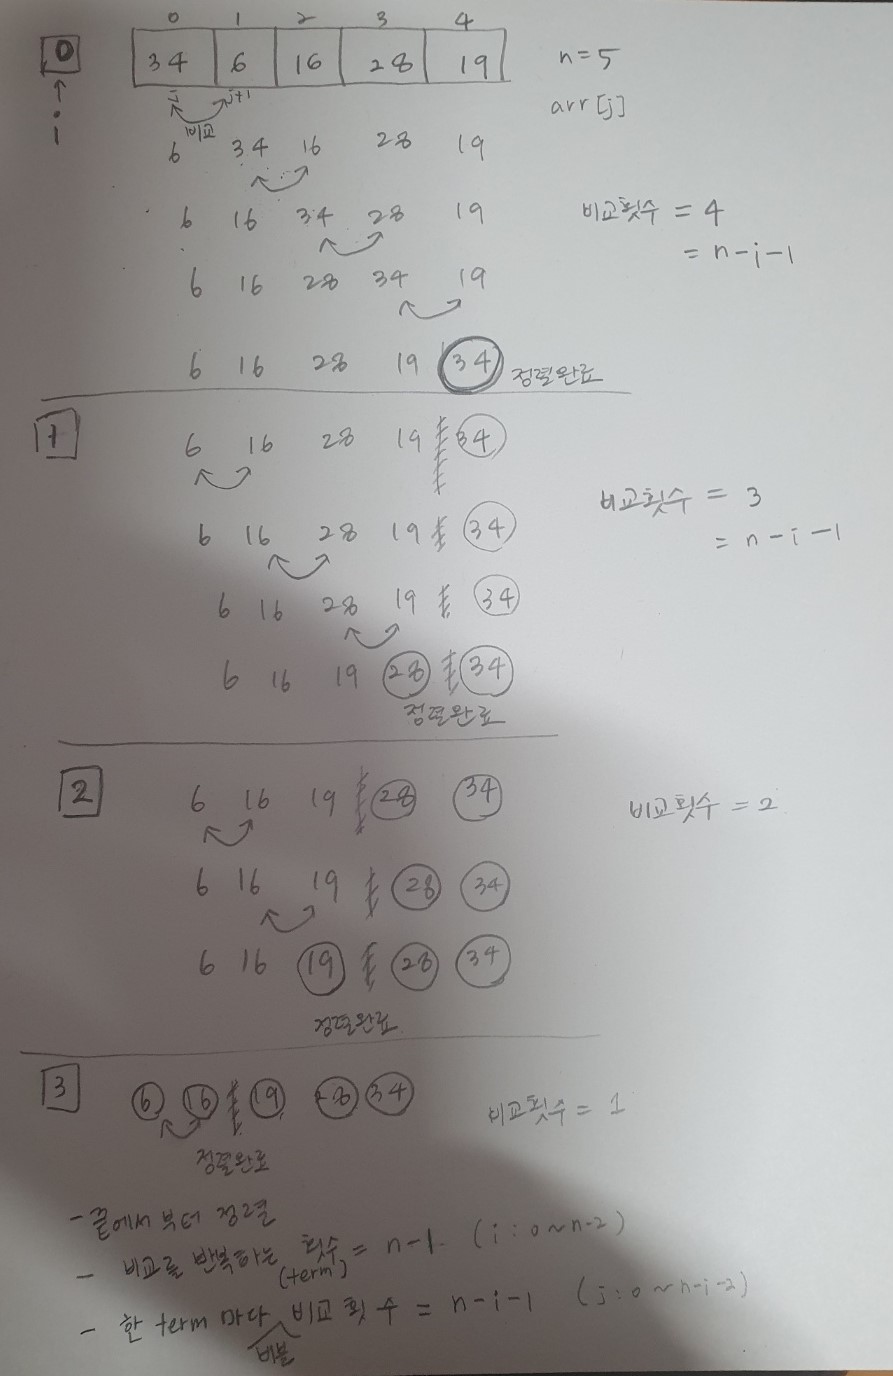 0 1 2 3 4
0 34 6 16 28 19 n=5
i j 비교 j+1 arr[j]
6 34 16 28 19
6 16 34 28 19 비교횟수 = 4
= n-i-1
6 16 28 34 19
6 16 28 19 34 정렬완료
1 6 16 28 19 34
비교횟수 = 3
6 16 28 19 34
= n-i-1
6 16 28 19 34
6 16 19 28 34
정렬완료
2 6 16 19 28 34 비교횟수 = 2
6 16 19 28 34
6 16 19 28 34
정렬완료
3 6 16 19 28 34 비교횟수 = 1
정렬완료
- 끝에서 부터 정렬
- 비교를 반복하는 횟수 = n-1. (i : 0 ~ n-2)
(term)
- 한 term 마다 비교 횟수 = n-i-1 (j : 0 ~ n-i-2)